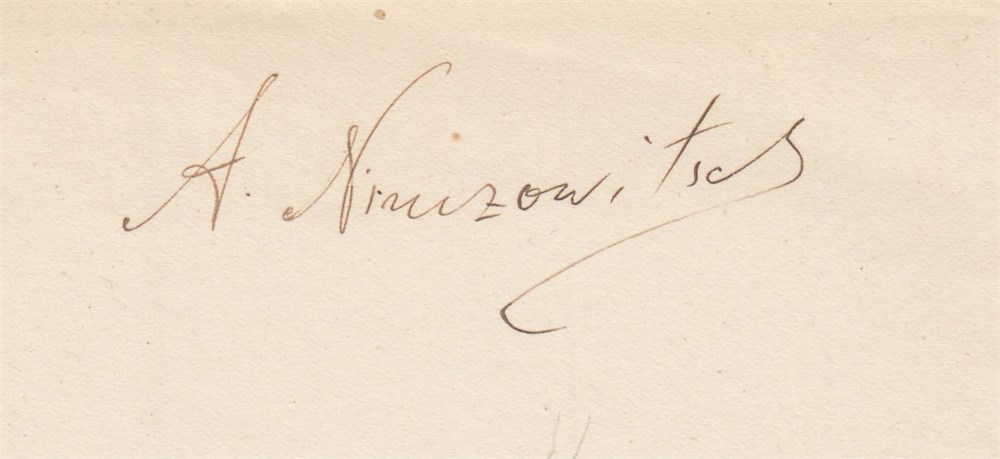 A. Nimzowitsch